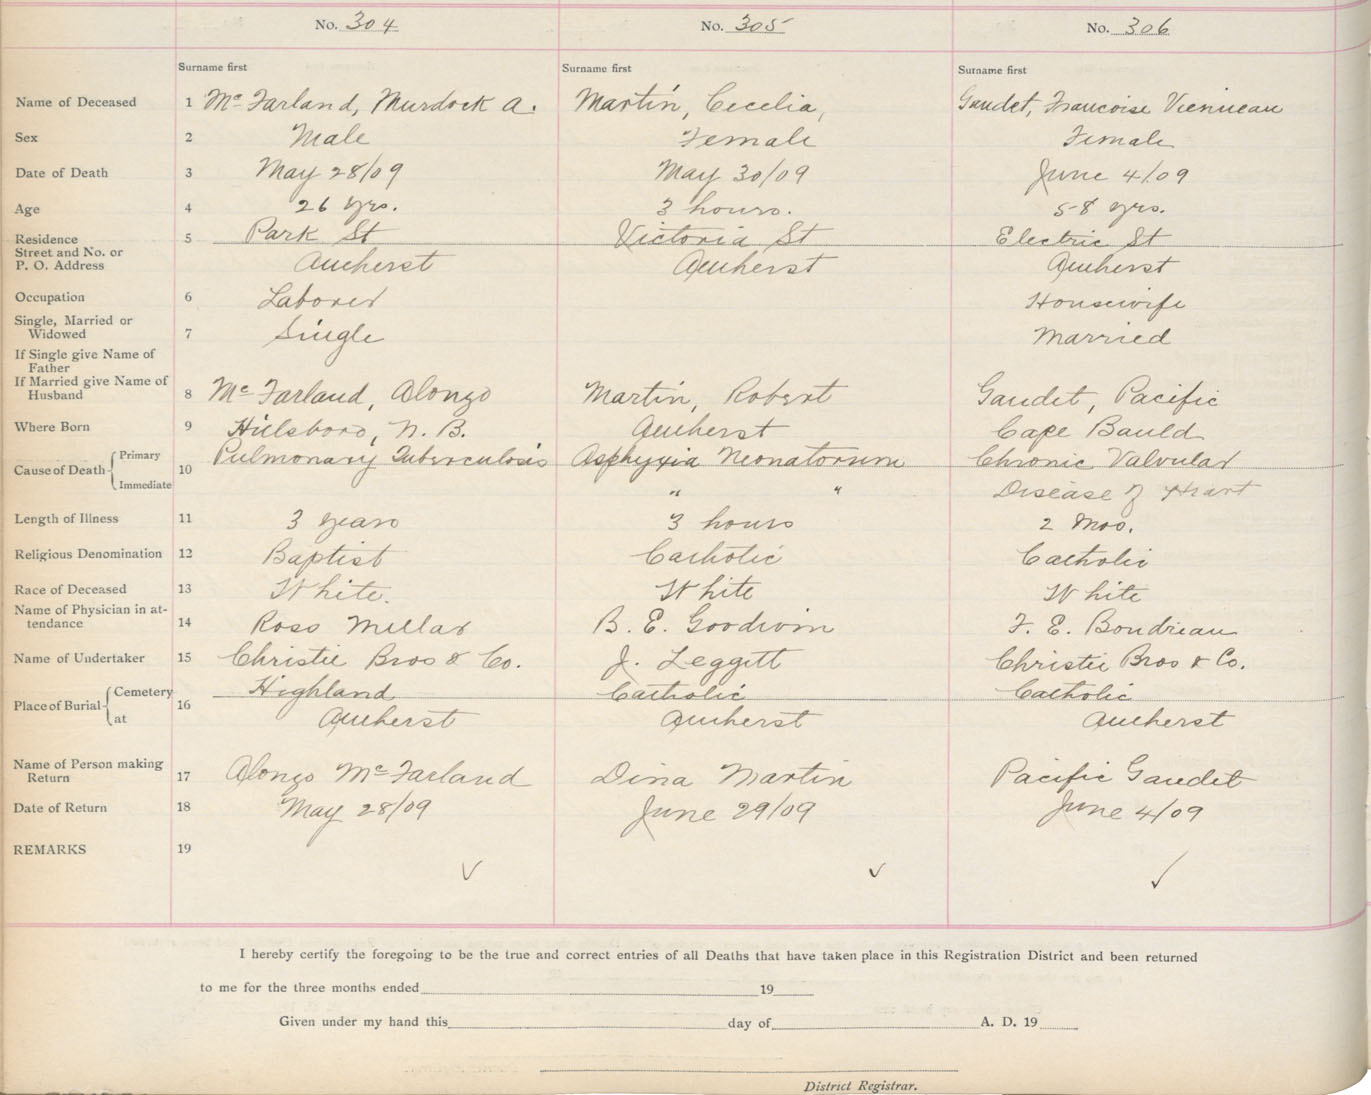 No. 304 No. 305 No. 306
Surname first Surname first Surname first
Name of Deceased 1 Mc Farland, Murdock A. Martin, Cecelia, Gaudet, Francoise Vienneau
Sex 2 Male Female Female
Date of Death 3 May 28/09 May 30/09 June 4/09
Age 4 26 yrs. 3 hours. 58 yrs.
Residence 5 Park St Victoria St Electric St
Street and No. or
P. O. Address Amherst Amherst Amherst
Occupation 6 Laborer Housewife
Single, Married or
Widowed 7 Single Married
If Single give Name of
Father
If Married give Name of
Husband 8 Mc Farland, Alonzo Martin, Robert Gaudet, Pacific
Where Born 9 Hillsboro, N. B. Amherst Cape Bauld
Cause of Death Primary 10 Pulmonary Tuberculosis Asphyxia Neonatorum Chronic Valvular
Immediate " " Disease of Heart
Length of Illness 11 3 years 3 hours 2 Mos.
Religious Denomination 12 Baptist Catholic Catholic
Race of Deceased 13 White. White White
Name of Physician in at-
tendance 14 Ross Millar B. E. Goodwin F. E. Boudreau
Name of Undertaker 15 Christie Bros & Co. J. Leggett Christie Bros & Co.
Place of Burial Cemetery 16 Highland Catholic Catholic
at Amherst Amherst Amherst
Name of Person making
Return 17 Alonzo Mc Farland Dina Martin Pacific Gaudet
Date of Return 18 May 28/09 June 29/09 June 4/09
REMARKS 19
I hereby certify the foregoing to be the true and correct entries of all Deaths that have taken place in this Registration District and been returned
to me for the three months ended 19
Given under my hand this day of A. D. 19
District Registrar.